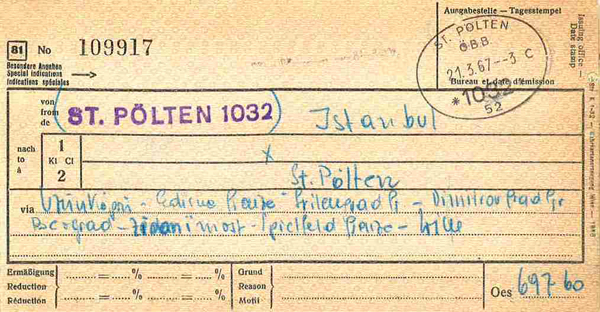 Ausgabestelle – Tagesstempel
Issuing office – Date stamp
ST. PÖLTEN
Ö.B.B.
21.3.67--3 C
*1032
52
Bureau et date d'émission
81 No 109917
Besondere Angaben
Special indications
Indications spéciales
von
from
de
ST. PÖLTEN 1032
Istanbul
nach
to
à
1
Kl Cl
2
x
St. Pölten
via
Uzunköprü - Edirne Grenze - Svilengrad Gr - Dimitrovgrad Gr
Beograd - Zidani most - Spielfeld Grenze -
Ermäßigung
Reduction
Réduction
..... = ..... %
..... = ..... %
..... = ..... %
..... = ..... %
Grund
Reason
Motif
Oes 697 60